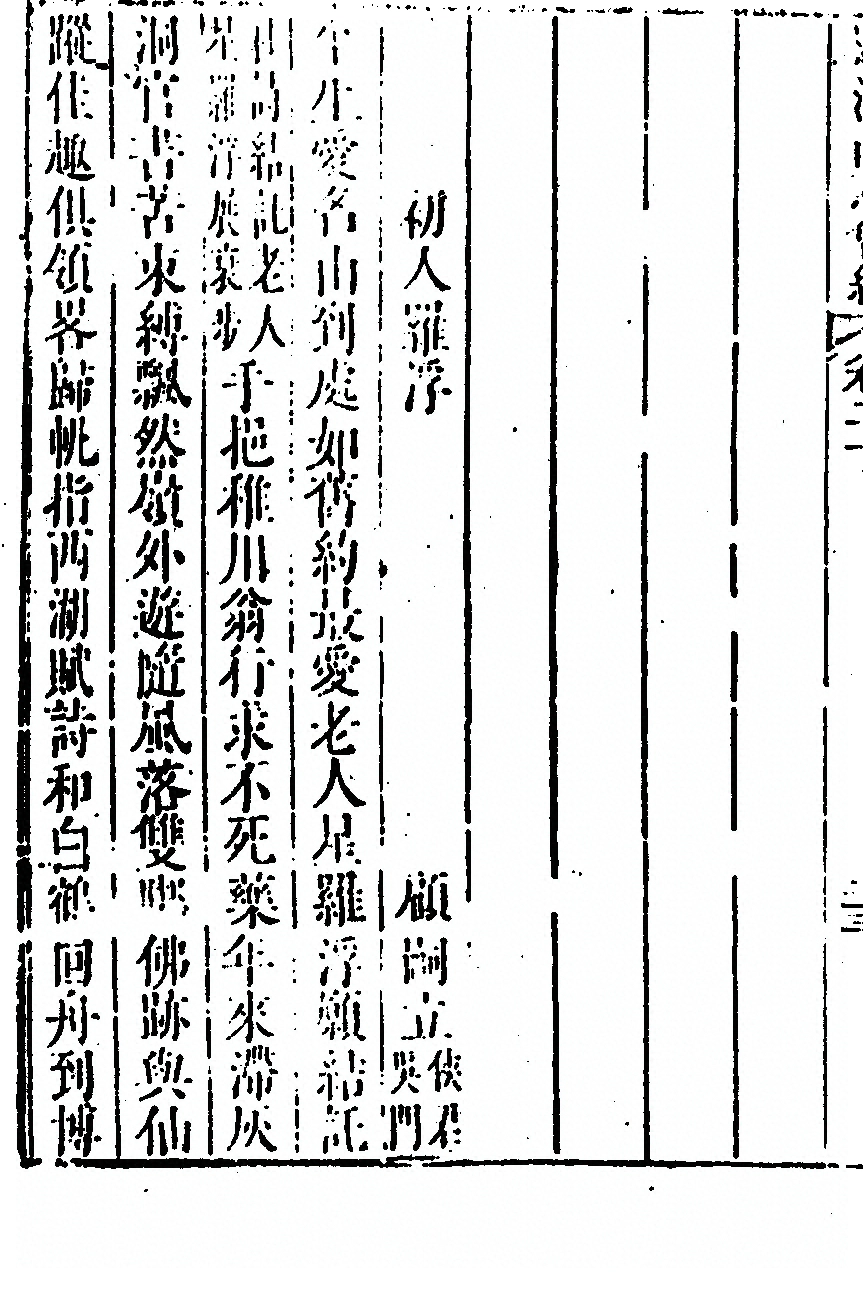 初入羅浮　顧嗣立 俠君 吳門
平生愛名山到處如舊約最愛老人星羅浮願結託
杜詩結託老人
星羅浮展衰步
手挹稚川翁行求不死藥年來滯灰
洞官書苦束縛飄然嶺外遊隨風落雙屩佛跡與仙
蹤佳趣俱領畧歸帆指西湖賦詩和白鶴回舟到博